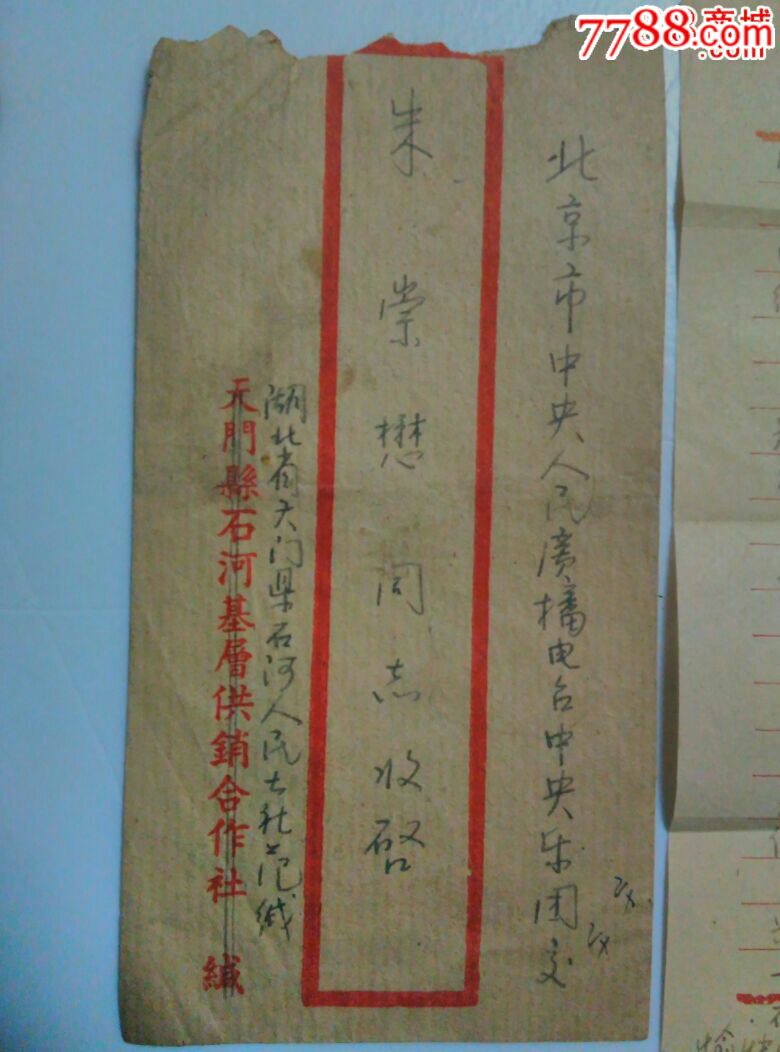 7788.商城
.com
北京市中央人民廣播电台中央乐团交
朱崇懋同志收启
湖北省天门県石河人民公社范缄
天門縣石河基層供銷合作社 緘
愉快